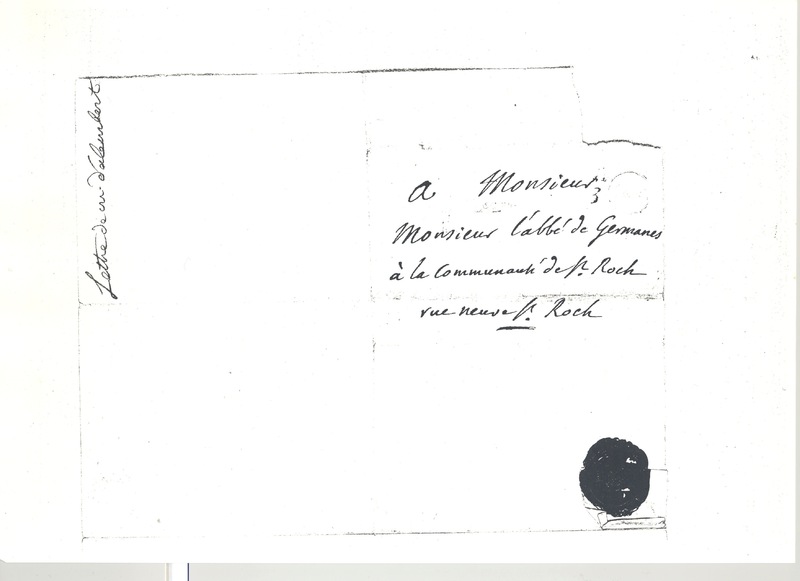 Lettre de m. d'alembert
a Monsieur
Monsieur l'abbé de Germanes
à la communauté de St. Roch
rue neuve St. Roch